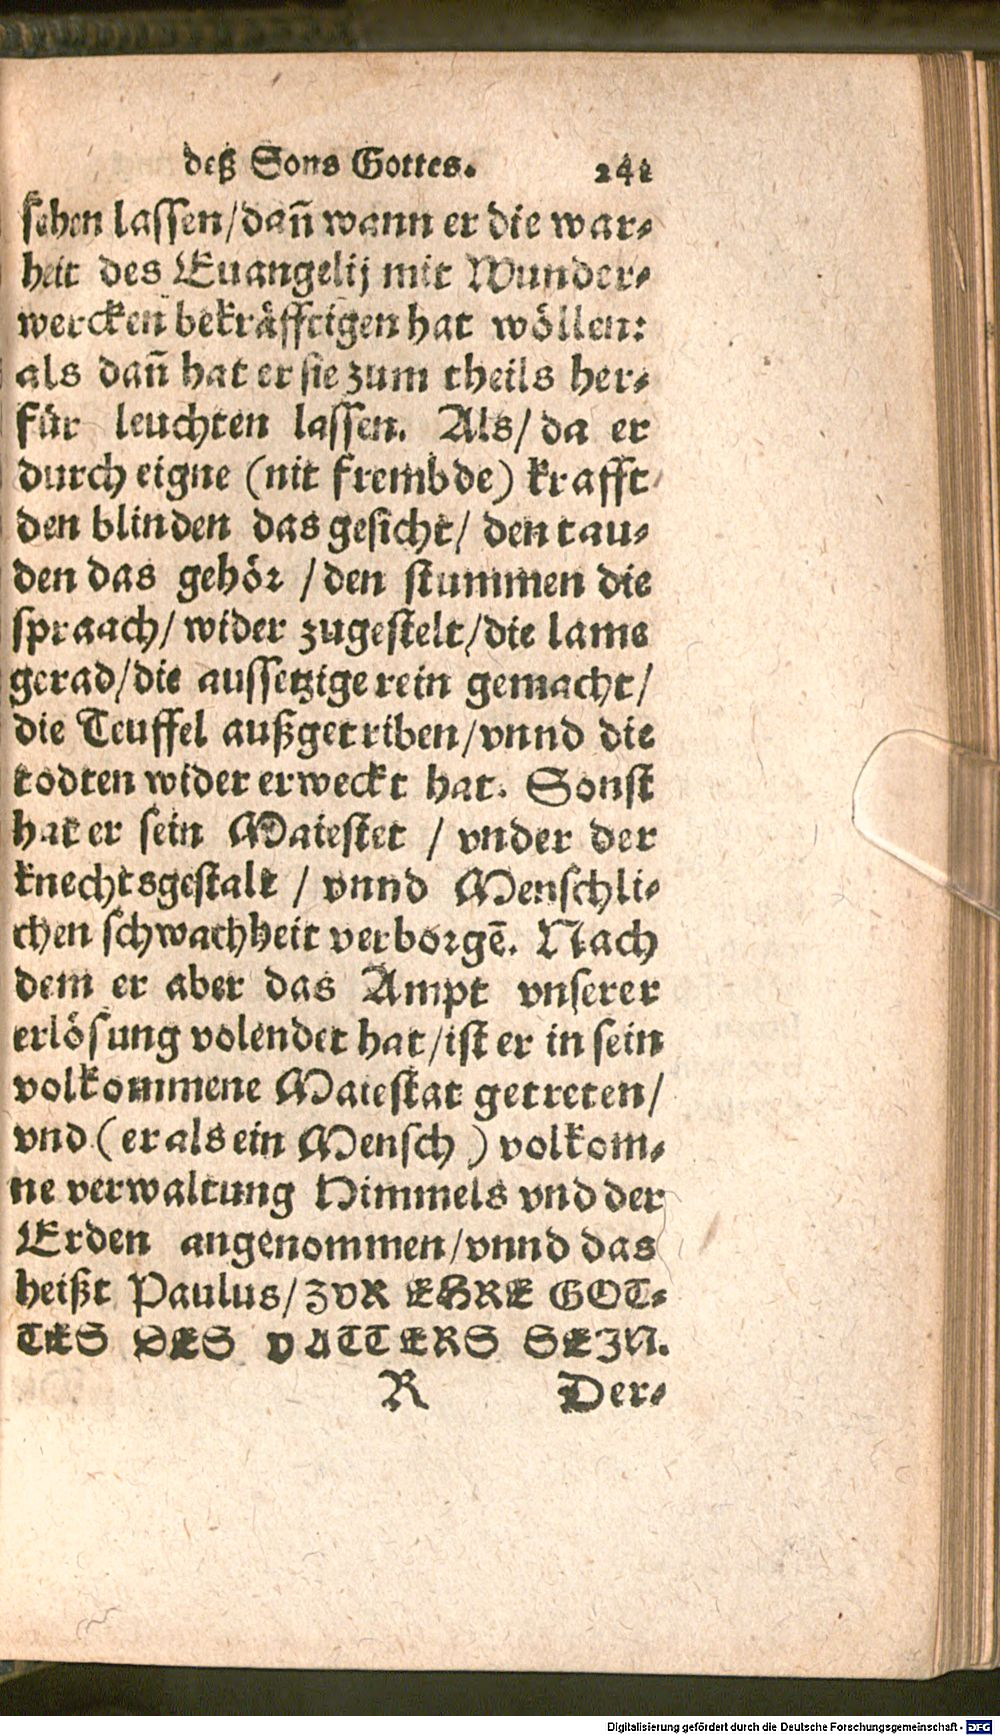 deß Sons Gottes. 241
sehen lassen/dañ wann er die war-
heit des Euangelij mit Wunder-
wercken bekräfftigen hat wöllen:
als dañ hat er sie zum theils her-
für leuchten lassen. Als/da er
durch eigne (nit frembde) krafft
den blinden das gesicht/den tau-
den das gehör/den stummen die
spraach/wider zugestelt/die lame
gerad/die aussetzige rein gemacht/
die Teuffel außgetriben/vnnd die
todten wider erweckt hat. Sonst
hat er sein Maiestet / vnder der
knechtsgestalt / vnnd Menschli-
chen schwachheit verborgē. Nach
dem er aber das Ampt vnserer
erlösung volendet hat/ist er in sein
volkommene Maiestat getreten/
vnd (er als ein Mensch) volkom-
ne verwaltung Himmels vnd der
Erden angenommen/vnnd das
heißt Paulus/ZVR EHRE GOT-
TES DES VATTERS SEIN.
R Der-
Digitalisierung gefördert durch die Deutsche Forschungsgemeinschaft - DFG